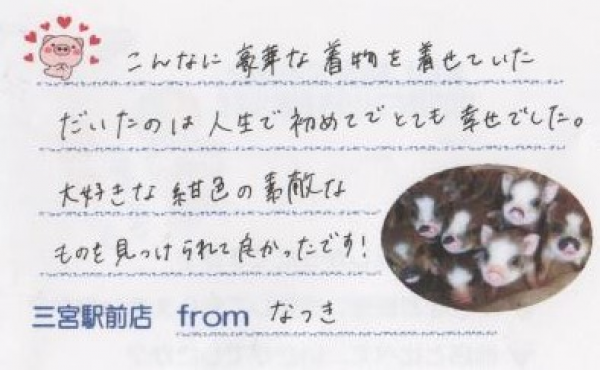 こんなに豪華な着物を着せていた
だいたのは人生で初めてでとても幸せでした。
大好きな紺色の素敵な
ものを見つけられて良かったです!
三宮駅前店 from なつき